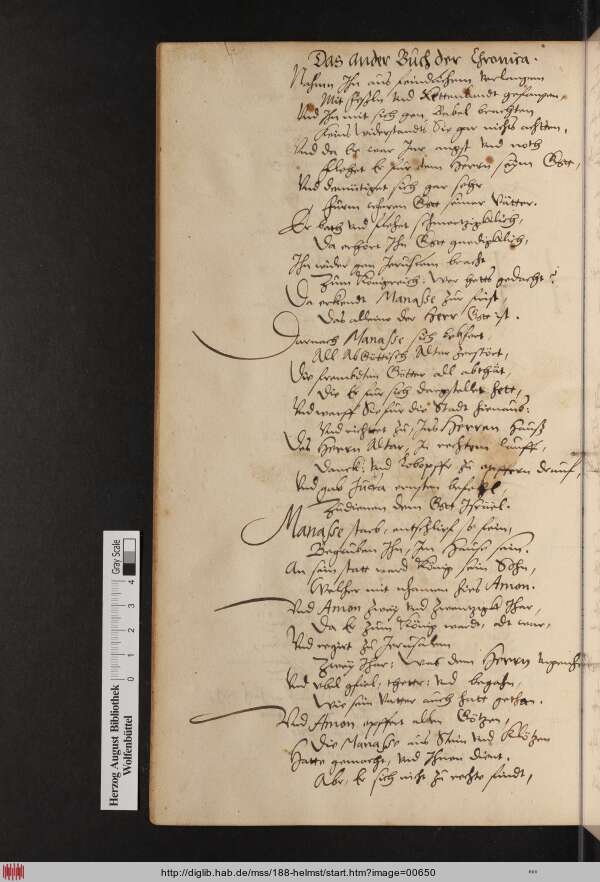 Das ander Buch der Chronica.
Nahmen Ihn aus
Mit Feßeln Vnd Kettenbandt gefangen,
Vnd Ihn mit sich gen Babel brachten
Keins widerstandts Sie gar nichts achtten,
Vnd da Er war Inn angst Vnd noth
Flehet Er für dem Herrn seim Gott,
Vnd demütiget sich gar sehr
Fürm Gott seiner Vätter.
Er bath Vnd flehet schmertziglich,
Da erhört Ihn Gott gnediglich,
Ihn wider gen Jerusalem bracht
Zum Königreich: Wer hetts gedacht?
Da erkendt Manaße zur frist,
Das alleine der Herr Gott ist.
Darnach Manaße sich bekhert,
All AbGöttisch Altar zerstört,
Die frembden Götter all abthät,
Die Er für sich dargestellet hett,
Vnd warff Sie für die Stadt hienaus:
Vnd richtet zu, Ins Herren Hauß
Des Herrn Altar, In rechtem lauff,
Danck: Vnd Lobopffr zu opffern drauf,
Vnd gab Juda ernsten befehl,
Zudienen dem Gott Israel.
Manaße starb, entschlief so fein,
Begruben Ihn, Im Hause sein.
An sein statt ward König sein Sohn,
Welcher mit nhamen hies Amon.
Vnd Amon zwey Vnd zwenzigk Ihar,
Da Er zum König ward, alt war,
Vnd regirt zu Jerusalem
Zwey Ihar: Was dem Herrn
Vnd Vbel gfiel, thette: Vnd begahn,
Wie sein Vatter auch hatt gethan.
Vnd Amon opffert allen Götzen,
Die Manaße aus Stein Vnd Klötzen
Hatte gemacht, Vnd Ihnen dient.
Abr, Er sich nicht zu rechte findt,
Gray Scale
0 1 2 3 4
Herzog August Bibliothek
Wolfenbüttel
http://diglib.hab.de/mss/188-helmst/start.htm?image=00650